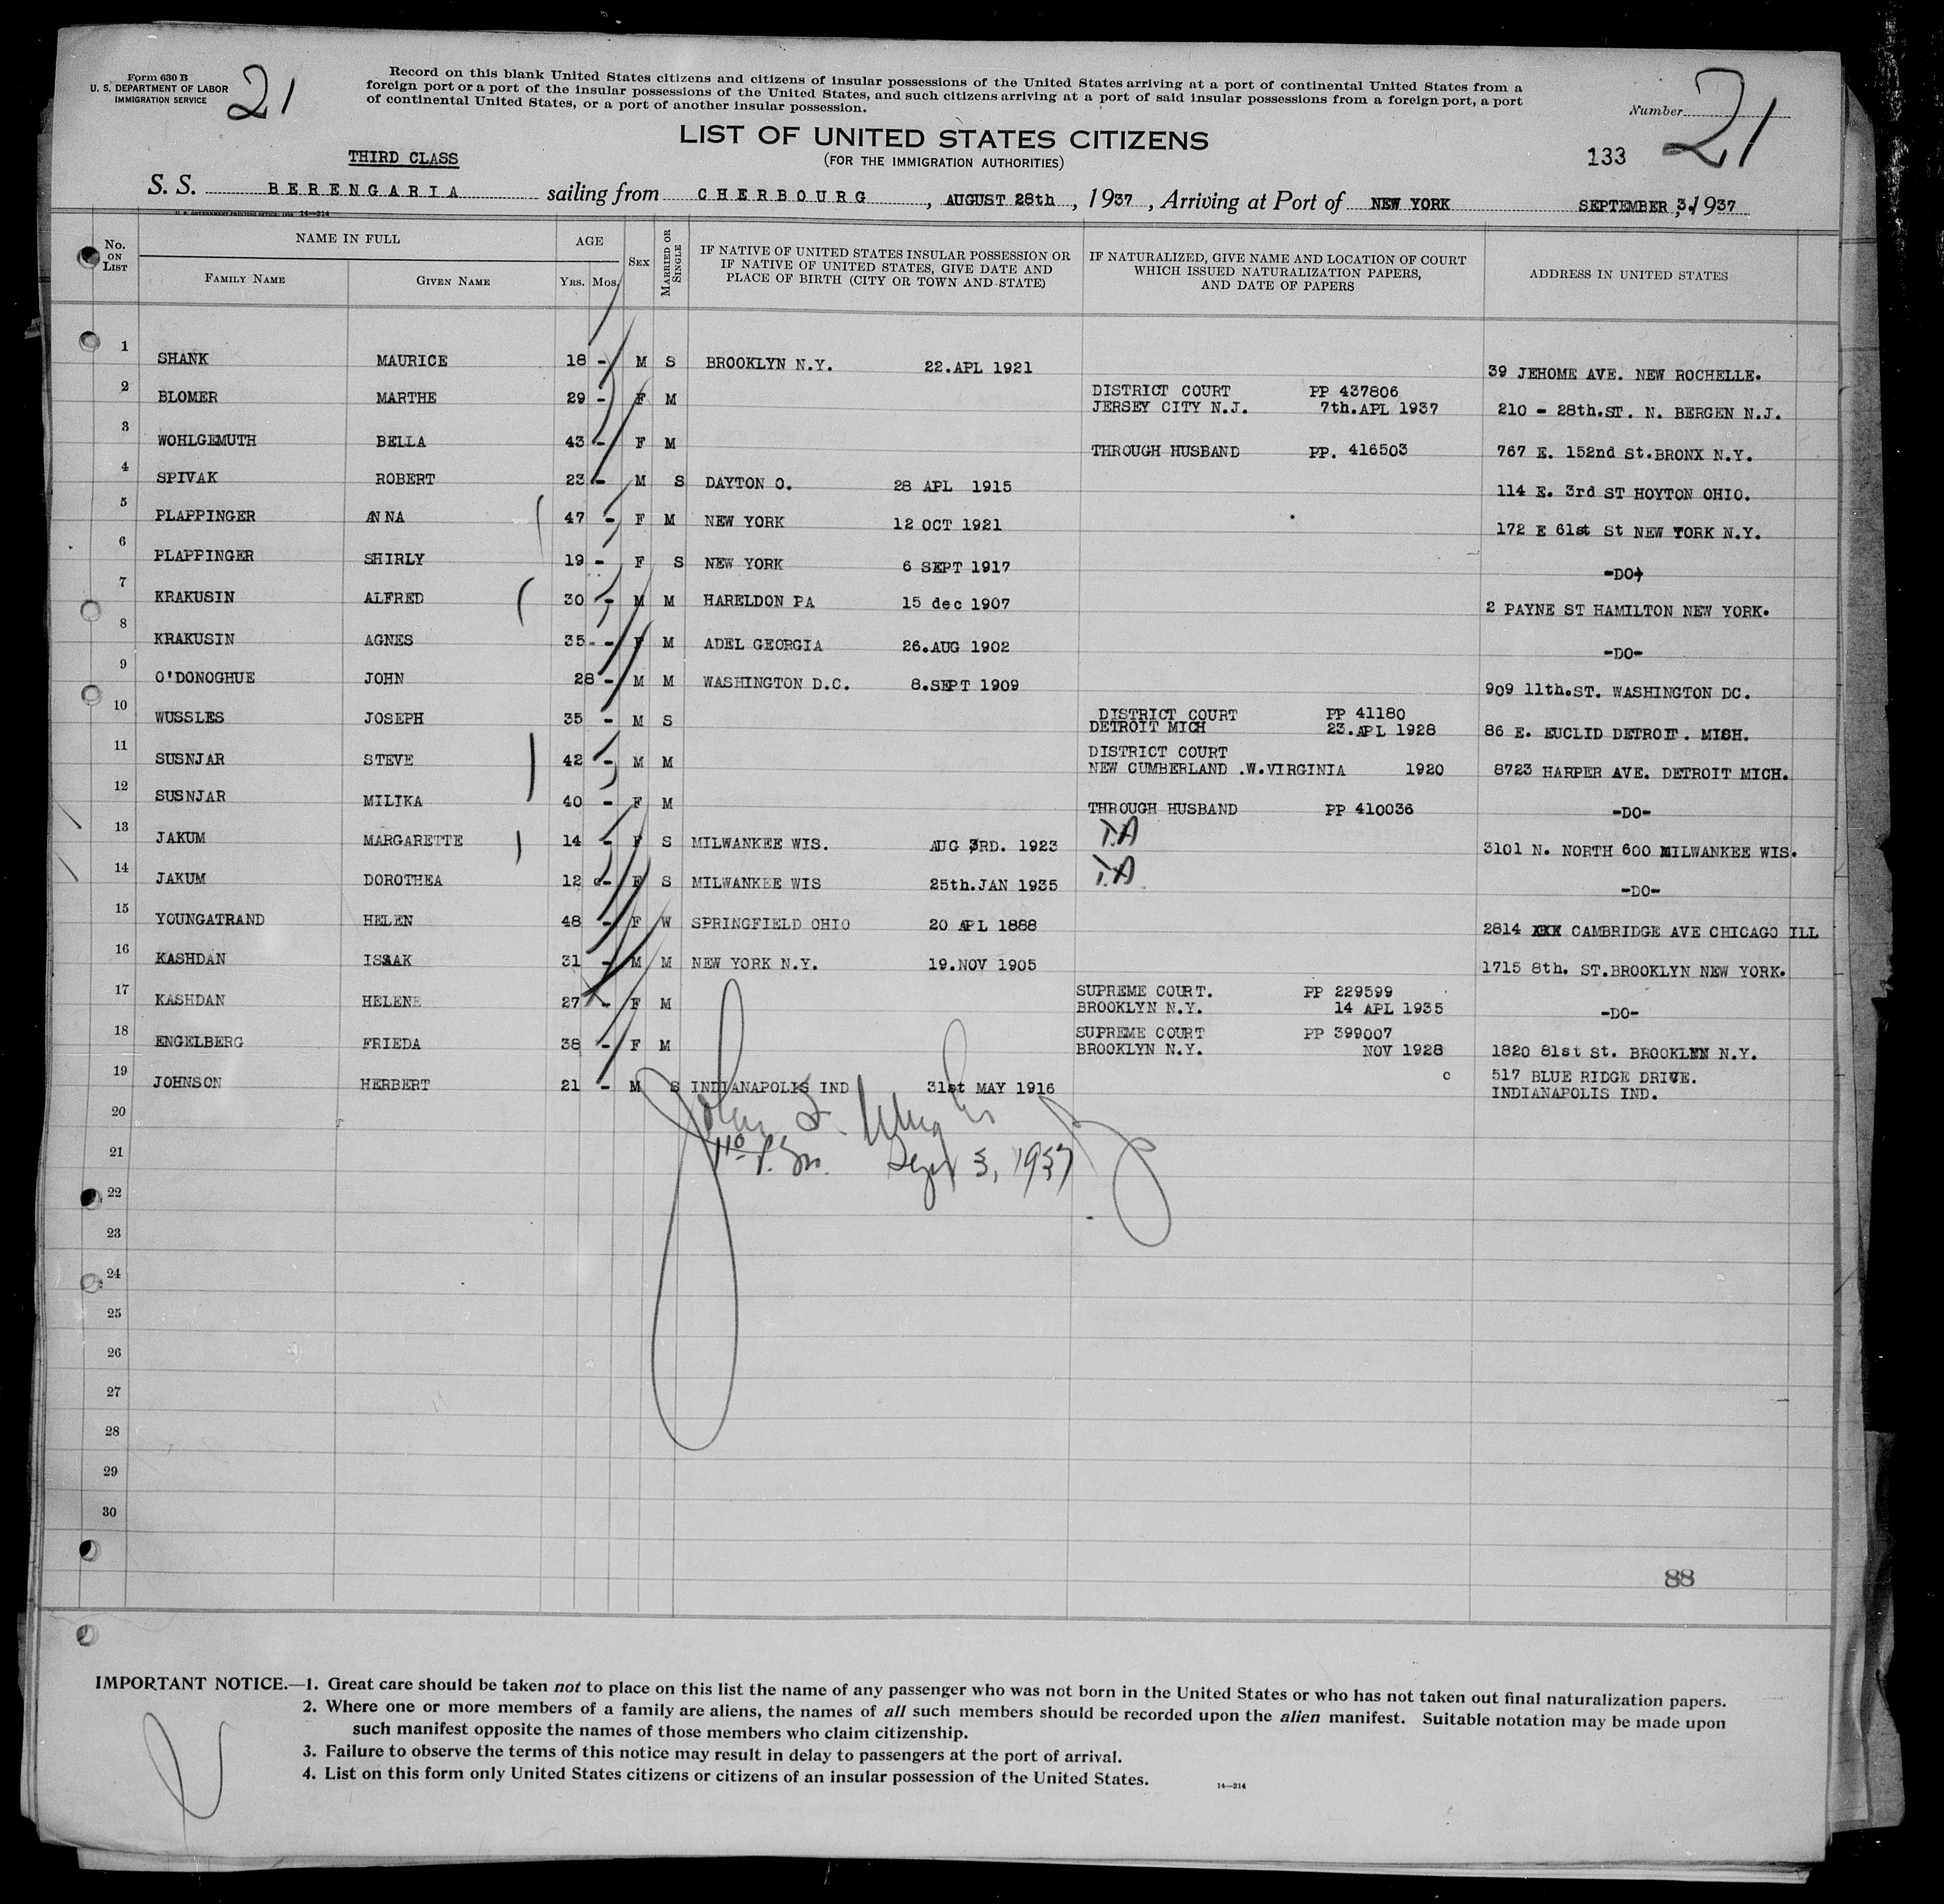 Form 630 B
U. S. DEPARTMENT OF LABOR
IMMIGRATION SERVICE
21
Record on this blank United States citizens and citizens of insular possessions of the United States arriving at a port of continental United States from a
foreign port or a port of the insular possessions of the United States, and such citizens arriving at a port of said insular possessions from a foreign port, a port
of continental United States, or a port of another insular possession.
Number 21
LIST OF UNITED STATES CITIZENS
(FOR THE IMMIGRATION AUTHORITIES)
THIRD CLASS
133
S. S. BERENGARIA sailing from CHERBOURG, AUGUST 28th, 1937, Arriving at Port of NEW YORK SEPTEMBER 3, 1937
U. S. GOVERNMENT PRINTING OFFICE 14—214
No. ON LIST NAME IN FULL FAMILY NAME GIVEN NAME AGE YRS. MOS. SEX MARRIED OR SINGLE IF NATIVE OF UNITED STATES INSULAR POSSESSION OR IF NATIVE OF UNITED STATES, GIVE DATE AND PLACE OF BIRTH (CITY OR TOWN AND STATE) IF NATURALIZED, GIVE NAME AND LOCATION OF COURT WHICH ISSUED NATURALIZATION PAPERS, AND DATE OF PAPERS ADDRESS IN UNITED STATES
1 SHANK MAURICE 18 - M S BROOKLYN N.Y. 22.APL 1921 39 JEHOME AVE. NEW ROCHELLE.
2 BLOMER MARTHE 29 - F M DISTRICT COURT PP 437806
JERSEY CITY N.J. 7th.APL 1937 210 - 28th.ST. N. BERGEN N.J.
3 WOHLGEMUTH BELLA 43 - F M THROUGH HUSBAND PP. 416503 767 E. 152nd St.BRONX N.Y.
4 SPIVAK ROBERT 23 - M S DAYTON O. 28 APL 1915 114 E. 3rd ST HOYTON OHIO.
5 PLAPPINGER ANNA 47 - F M NEW YORK 12 OCT 1921 172 E 61st St NEW YORK N.Y.
6 PLAPPINGER SHIRLY 19 - F S NEW YORK 6 SEPT 1917 -DO-
7 KRAKUSIN ALFRED 30 - M M HARELDON PA 15 dec 1907 2 PAYNE ST HAMILTON NEW YORK.
8 KRAKUSIN AGNES 35 - F M ADEL GEORGIA 26.AUG 1902 -DO-
9 O'DONOGHUE JOHN 28 - M M WASHINGTON D.C. 8.SEPT 1909 909 11th.ST. WASHINGTON DC.
10 WUSSLES JOSEPH 35 - M S DISTRICT COURT PP 41180
DETROIT MICH 23.APL 1928 86 E. EUCLID DETROIT. MICH.
11 SUSNJAR STEVE 42 - M M DISTRICT COURT
NEW CUMBERLAND .W.VIRGINIA 1920 8723 HARPER AVE. DETROIT MICH.
12 SUSNJAR MILIKA 40 - F M THROUGH HUSBAND PP 410036 -DO-
13 JAKUM MARGARETTE 14 - F S MILWANKEE WIS. AUG 3RD. 1923 T.A 3101 N. NORTH 600 MILWANKEE WIS.
14 JAKUM DOROTHEA 12 - F S MILWANKEE WIS 25th.JAN 1935 T.A -DO-
15 YOUNGATRAND HELEN 48 - F W SPRINGFIELD OHIO 20 APL 1888 2814 XXX CAMBRIDGE AVE CHICAGO ILL
16 KASHDAN ISAAK 31 - M M NEW YORK N.Y. 19.NOV 1905 1715 8th. ST.BROOKLYN NEW YORK.
17 KASHDAN HELENE 27 - F M SUPREME COURT. PP 229599
BROOKLYN N.Y. 14 APL 1935 -DO-
18 ENGELBERG FRIEDA 38 - F M SUPREME COURT PP 399007
BROOKLYN N.Y. NOV 1928 1820 81st St. BROOKLEN N.Y.
19 JOHNSON HERBERT 21 - M S INDIANAPOLIS IND 31st MAY 1916 c 517 BLUE RIDGE DRIVE.
INDIANAPOLIS IND.
20
John
21
P.M. Sept 3, 1937
22
23
24
25
26
27
28
29
30
88
IMPORTANT NOTICE.—1. Great care should be taken not to place on this list the name of any passenger who was not born in the United States or who has not taken out final naturalization papers.
2. Where one or more members of a family are aliens, the names of all such members should be recorded upon the alien manifest. Suitable notation may be made upon
such manifest opposite the names of those members who claim citizenship.
3. Failure to observe the terms of this notice may result in delay to passengers at the port of arrival.
4. List on this form only United States citizens or citizens of an insular possession of the United States.
14—214